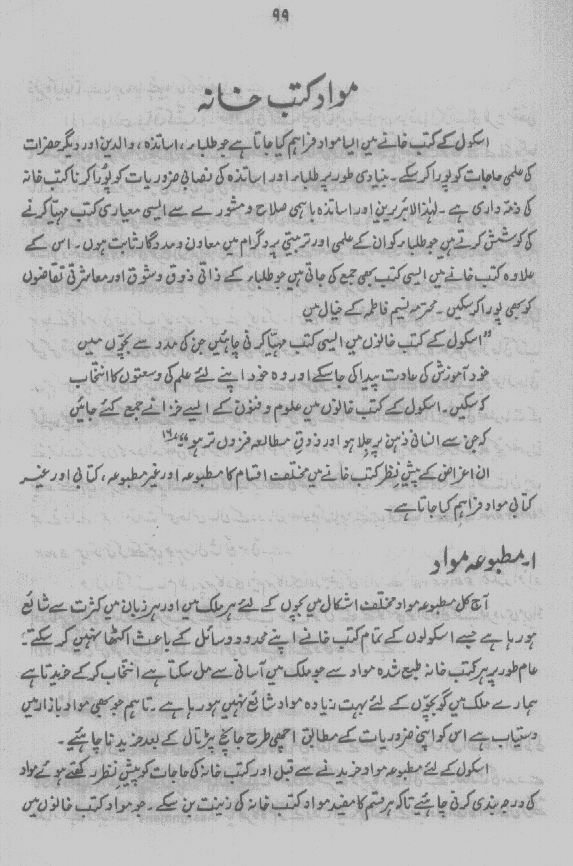 ۹۹
مواد کتب خانہ
اسکول کے کتب خانے میں ایسا مواد فراہم کیا جاتا ہے جو طلباء، اساتذہ، والدین اور دیگر حضرات
کی علمی حاجات کو پورا کر سکے۔ بنیادی طور پر طلباء اور اساتذہ کی نصابی ضروریات کو پورا کرنا کتب خانہ
کی ذمہ داری ہے۔ لہٰذا لائبریرین اور اساتذہ باہمی صلاح و مشورے سے ایسی معیاری کتب مہیّا کرنے
کی کوشش کرتے ہیں جو طلباء کو ان کے علمی اور تربیتی پروگرام میں معاون و مددگار ثابت ہوں۔ اس کے
علاوہ کتب خانے میں ایسی کتب بھی جمع کی جاتی ہیں جو طلباء کے ذاتی ذوق و شوق اور معاشرتی تقاضوں
کو بھی پورا کر سکیں۔ محترمہ نسیم فاطمہ کے خیال میں
”اسکول کے کتب خانوں میں ایسی کتب مہیّا کرنی چاہئیں جن کی مدد سے بچّوں میں
خود آموزش کی عادت پیدا کی جا سکے اور وہ خود اپنے لئے علم کی وسعتوں کا انتخاب
کر سکیں۔ اسکول کے کتب خانوں میں علوم و فنون کے ایسے خزانے جمع کئے جائیں
کہ جن سے انسانی ذہن پر جِلا ہو اور ذوقِ مطالعہ فزوں تر ہو“
ان اغراض کے پیشِ نظر کتب خانے میں مختلف اقسام کا مطبوعہ اور غیر مطبوعہ، کتابی اور غیر
کتابی مواد فراہم کیا جاتا ہے۔
۱۔ مطبوعہ مواد
آج کل مطبوعہ مواد مختلف اشکال میں بچوں کے لئے ہر ملک میں اور ہر زبان میں کثرت سے شائع
ہو رہا ہے جسے اسکولوں کے تمام کتب خانے اپنے محدود وسائل کے باعث اکٹھا نہیں کر سکتے۔
عام طور پر ہر کتب خانہ طبع شدہ مواد سے جو ملک میں آسانی سے مل سکتا ہے انتخاب کر کے خریدتا ہے
ہمارے ملک میں گو بچّوں کے لئے بہت زیادہ مواد شائع نہیں ہو رہا ہے۔ تاہم جو بھی مواد بازار میں
دستیاب ہے اس کو اپنی ضروریات کے مطابق اچھی طرح جانچ پڑتال کے بعد خریدنا چاہئیے۔
اسکول کے لئے مطبوعہ مواد خریدنے سے قبل اور کتب خانہ کی حاجات کو پیشِ نظر رکھتے ہوئے مواد
کی درجہ بندی کرنی چاہئیے تاکہ ہر قسم کا مفید مواد کتب خانہ کی زینت بن سکے۔ جو مواد کتب خانوں میں